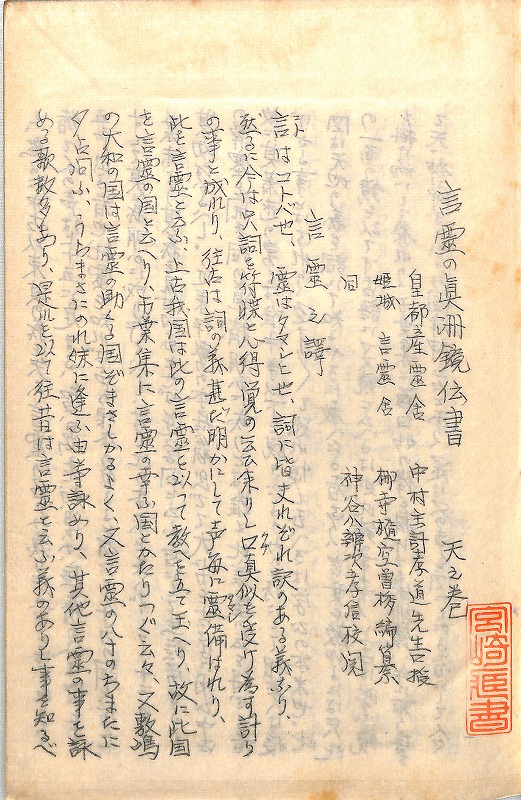 言霊の真洲鏡伝書　天之巻
皇都産霊舎　中村主計孝道先生口授
姫城　言霊舎　柳寺　編纂
同　神谷　孝信校閲
言霊之譯
言はコトバ也、霊はタマシヒ也、詞に皆夫れぞれ訳のある義なり、
然るに今は只詞を符牒と心得覚の云ひ来りし口真似を受け為す計り
の事と成れり、往古は詞の義甚だ明かにして声毎に霊備はれり、
此を言霊と云ふ、上古我国は此の言霊を以って教へを立て玉へり、故に此国
を言霊の国と云へり、万葉集に言霊の幸ふ国とかたりつぐ云々、又敷嶋
の大和の国は言霊の助くる国ぞまさしかるよく、又言霊の八十のちまたに
夕占問ふ、うらまさにのれ妹に逢ふ由等詠めり、其他言霊の事を詠
める歌数多あり、是れを以て往昔は言霊と云ふ義のありし事を知るべ
宮崎
書